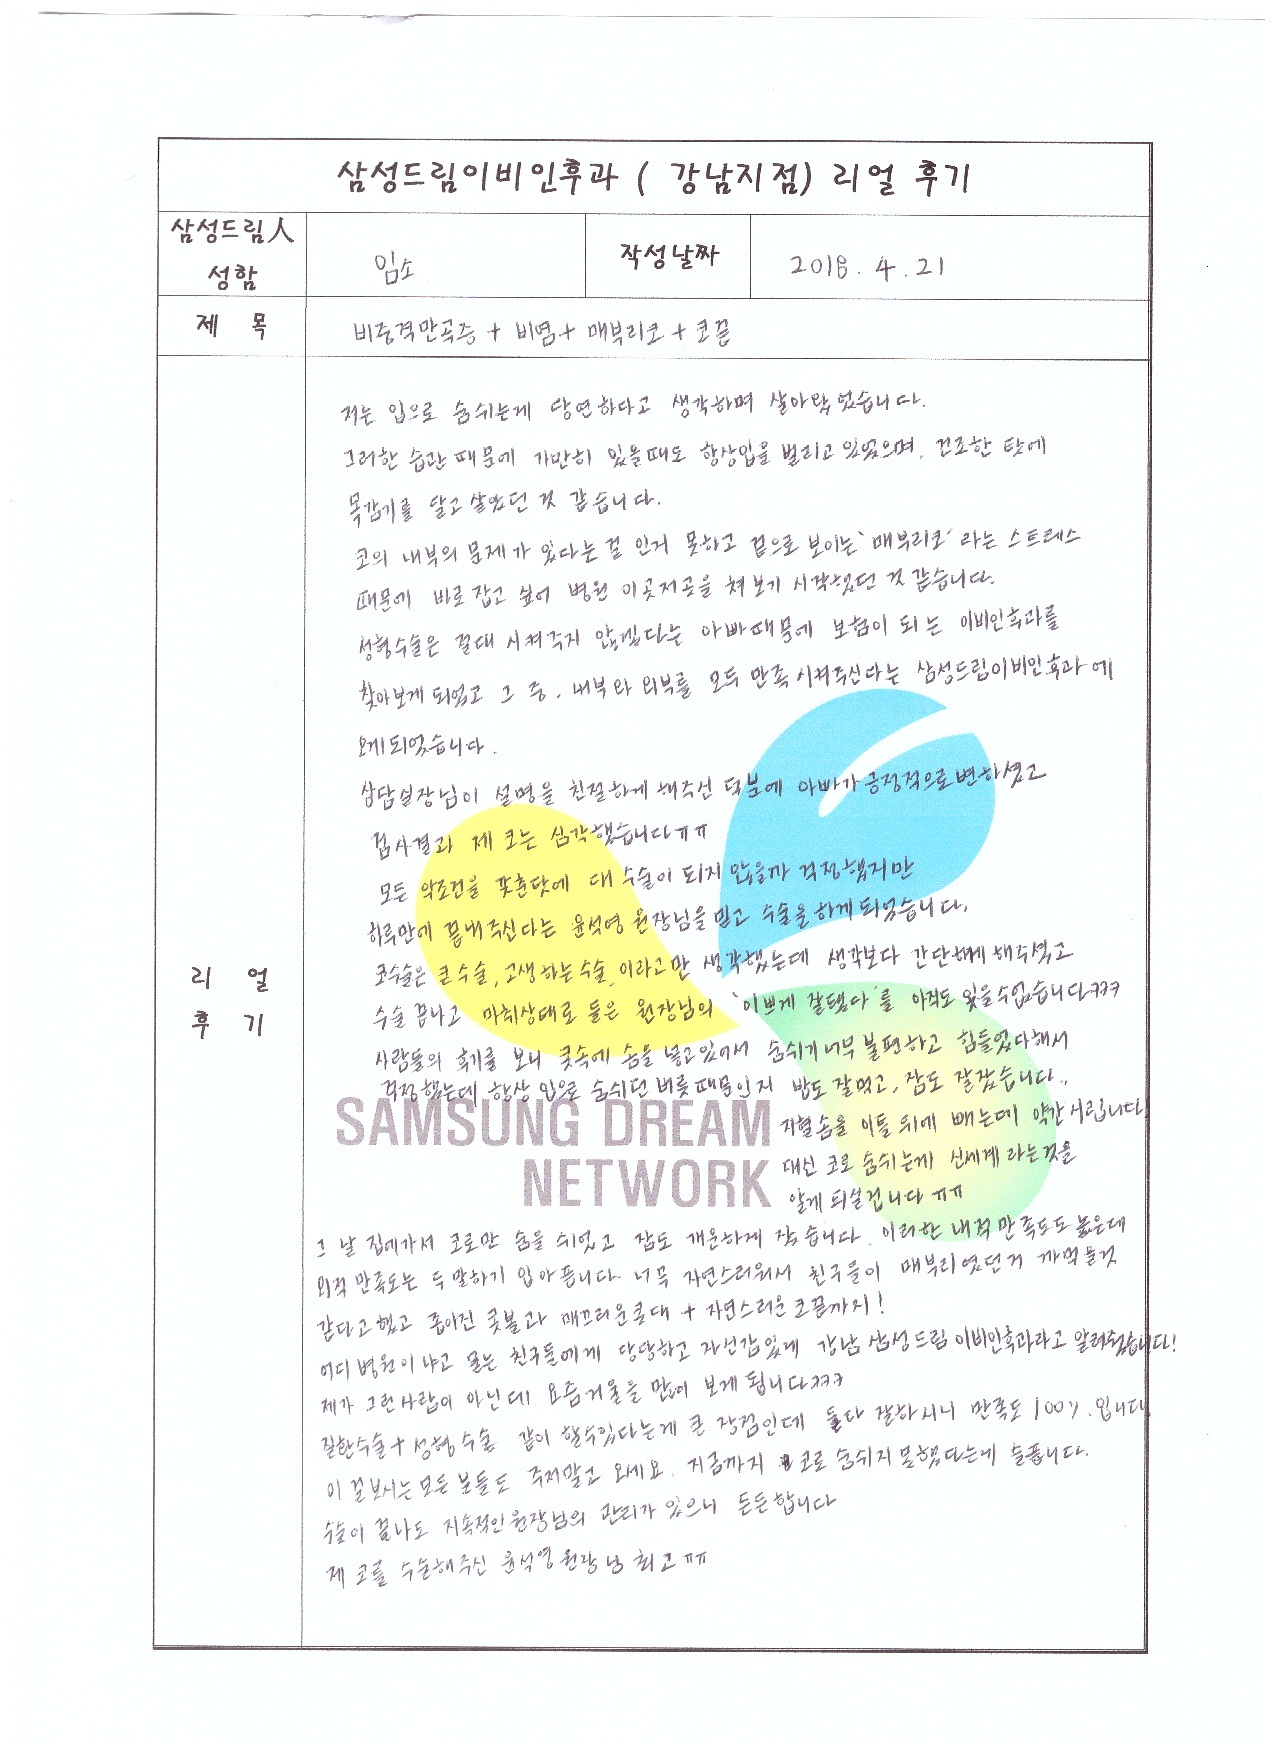 삼성드림이비인후과 ( 강남지점) 리얼 후기
삼성드림人
성함
임소
작성날짜
2018. 4. 21
제 목
비중격만곡증 + 비염 + 매부리코 + 코끝
리 얼
후 기
저는 입으로 숨쉬는게 당연하다고 생각하며 살아왔었습니다.
그러한 습관 때문에 가만히 있을때도 항상입을 벌리고 있었으며, 건조한 탓에
목감기를 달고 살았던 것 같습니다.
코의 내부의 문제가 있다는 걸 인거 못하고 겉으로 보이는 '매부리코' 라는 스트레스
때문에 바로 잡고 싶어 병원 이곳저곳을 쳐보기 시작했던 것 같습니다.
성형수술은 절대 시켜주지 않겠다는 아빠때문에 보험이 되는 이비인후과를
찾아보게 되었고 그 중, 내부와 외부를 모두 만족시켜주신다는 삼성드림이비인후과에
오게되었습니다.
상담실장님이 설명을 친절하게 해주신 덕분에 아빠가 긍정적으로 변하셨고
검사결과 제 코는 심각했습니다ㅠㅠ
모든 악조건을 갖춘탓에 대수술이 되지 않을까 걱정했지만
하루만에 끝내주신다는 윤석영 원장님을 믿고 수술을 하게되었습니다.
코수술은 큰수술, 고생하는수술 이라고만 생각했는데 생각보다 간단하게 해주셨고
수술 끝나고 마취상태로 들은 원장님의 '이쁘게 잘됐다'를 아직도 잊을수없습니다ㅋㅋㅋ
사람들의 후기를 보니 콧속에 솜을 넣고있어서 숨쉬기 너무 불편하고 힘들었다해서
걱정했는데 항상 입으로 숨쉬던 버릇때문인지 밥도 잘먹고, 잠도 잘잤습니다..
SAMSUNG DREAM
NETWORK
지혈솜을 이틀 뒤에 빼는데 약간 시립니다
대신 코로 숨쉬는게 신세계 라는것을
알게 되실겁니다 ㅠㅠ
그 날 집에가서 코로만 숨을 쉬었고 잠도 개운하게 잤습니다. 이러한 내적만족도도 높은데
외적 만족도는 두말하기 입아픕니다. 너무 자연스러워서 친구들이 매부리였던거 까먹을것
같다고 했고 좁아진 콧볼과 매끄러운콧대 + 자연스러운 코끝까지!
어디 병원이냐고 묻는 친구들에게 당당하고 자신감있게 강남 삼성드림이비인후과라고 알려줬습니다!
제가 그런사람이 아닌데 요즘거울을 많이 보게 됩니다ㅋㅋㅋ
질환수술 + 성형수술 같이 할수있다는게 큰 장점인데 둘다 잘하시니 만족도 100%입니다
이 걸보시는 모든 분들도 주저말고 오세요. 지금까지 코로 숨쉬지 못했다는게 슬픕니다.
수술이 끝나도 지속적인 원장님의 관리가 있으니 든든합니다
제 코를 수술해주신 윤석영 원장님 최고 ㅠㅠ